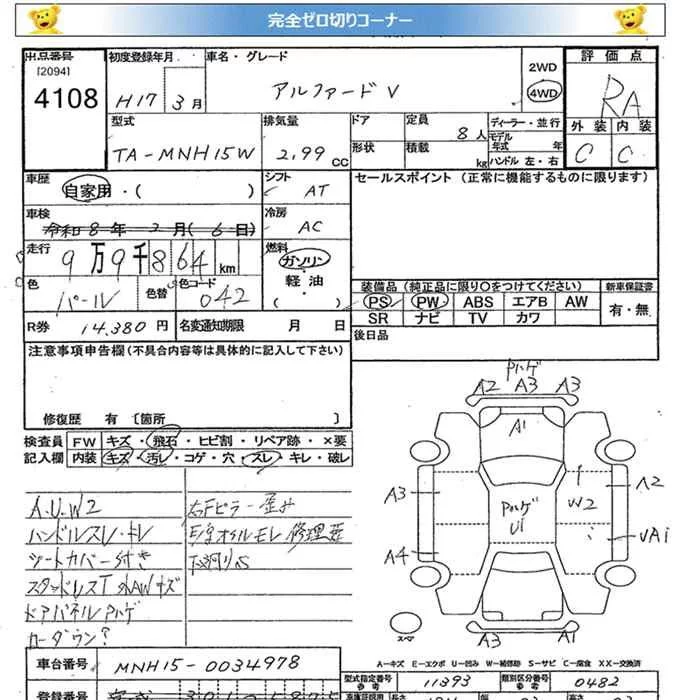 完全ゼロ切りコーナー
出品番号 初度登録年月 車名・グレード 評価点
[2094] 2WD
4108 H17 3月 アルファード V 4WD RA
型式 排気量 ドア 定員 ディーラー・並行 外装 内装
TA-MNH15W 2.99 CC 形状 積載 8人 モデル年式 年 C C
kg ハンドル 左・右
車歴 シフト セールスポイント(正常に機能するものに限ります)
自家用・( ) AT
車検 冷房
令和8年2月(6日) AC
走行 燃料
9万9千864km ガソリン・
色 色替 色コード 軽油 装備品(純正品に限り○をつけてください) 新車保証書
パール 042 ・( ) PS PW ABS エアB AW 有・無
R券 14,380円 名変通知期限 月 日 SR ナビ TV カワ
後日品
注意事項申告欄(不具合内容等は具体的に記入して下さい)
修復歴 有 〔箇所 〕
検査員 FW キズ・飛石・ヒビ割・リペア跡・×要
記入欄 内装 キズ・汚レ・コゲ・穴・スレ・キレ・破レ
A.U.W2 右Fピラー歪み
ハンドルスレ・キレ E/Gオイルモレ修理要
シートカバー付き 下廻りS
スタッドレスT 外AWキズ
ドアパネルPハゲ
カーダウン?
Pハゲ
A2 A3 A3
A1
A3 PハゲU1 W2 A2
A4 UA1
スペア A3 A1
A-キズ E-エクボ U-凹み W-補修跡 S-サビ C-腐食 XX-交換済
車台番号 MNH15-0034978
型式指定番号 参考 11393 類別区分番号 参考 0482
登録番号